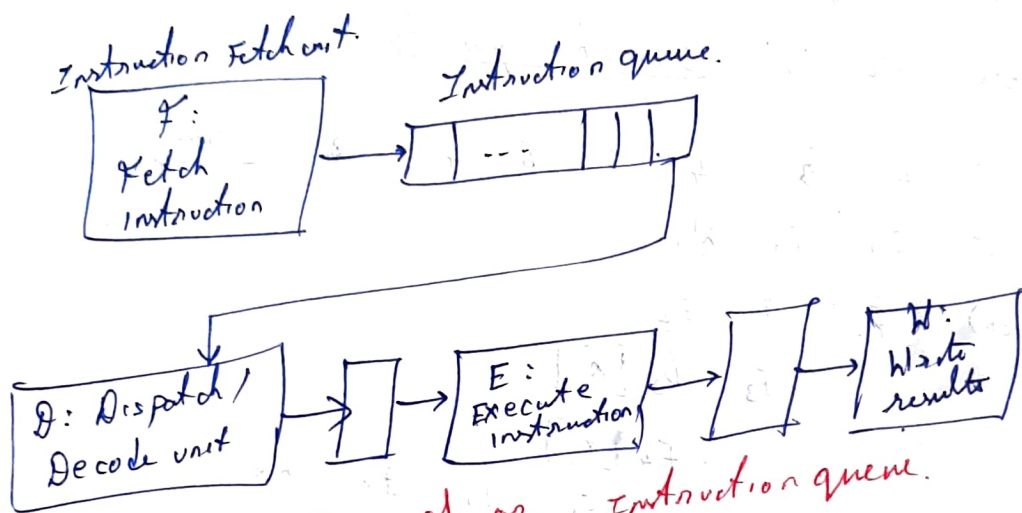 Instruction Fetch unit.
Instruction queue.
F:
Fetch
instruction
...
D: Dispatch/
Decode unit
E:
Execute
instruction
W:
Write
results
Instruction queue.